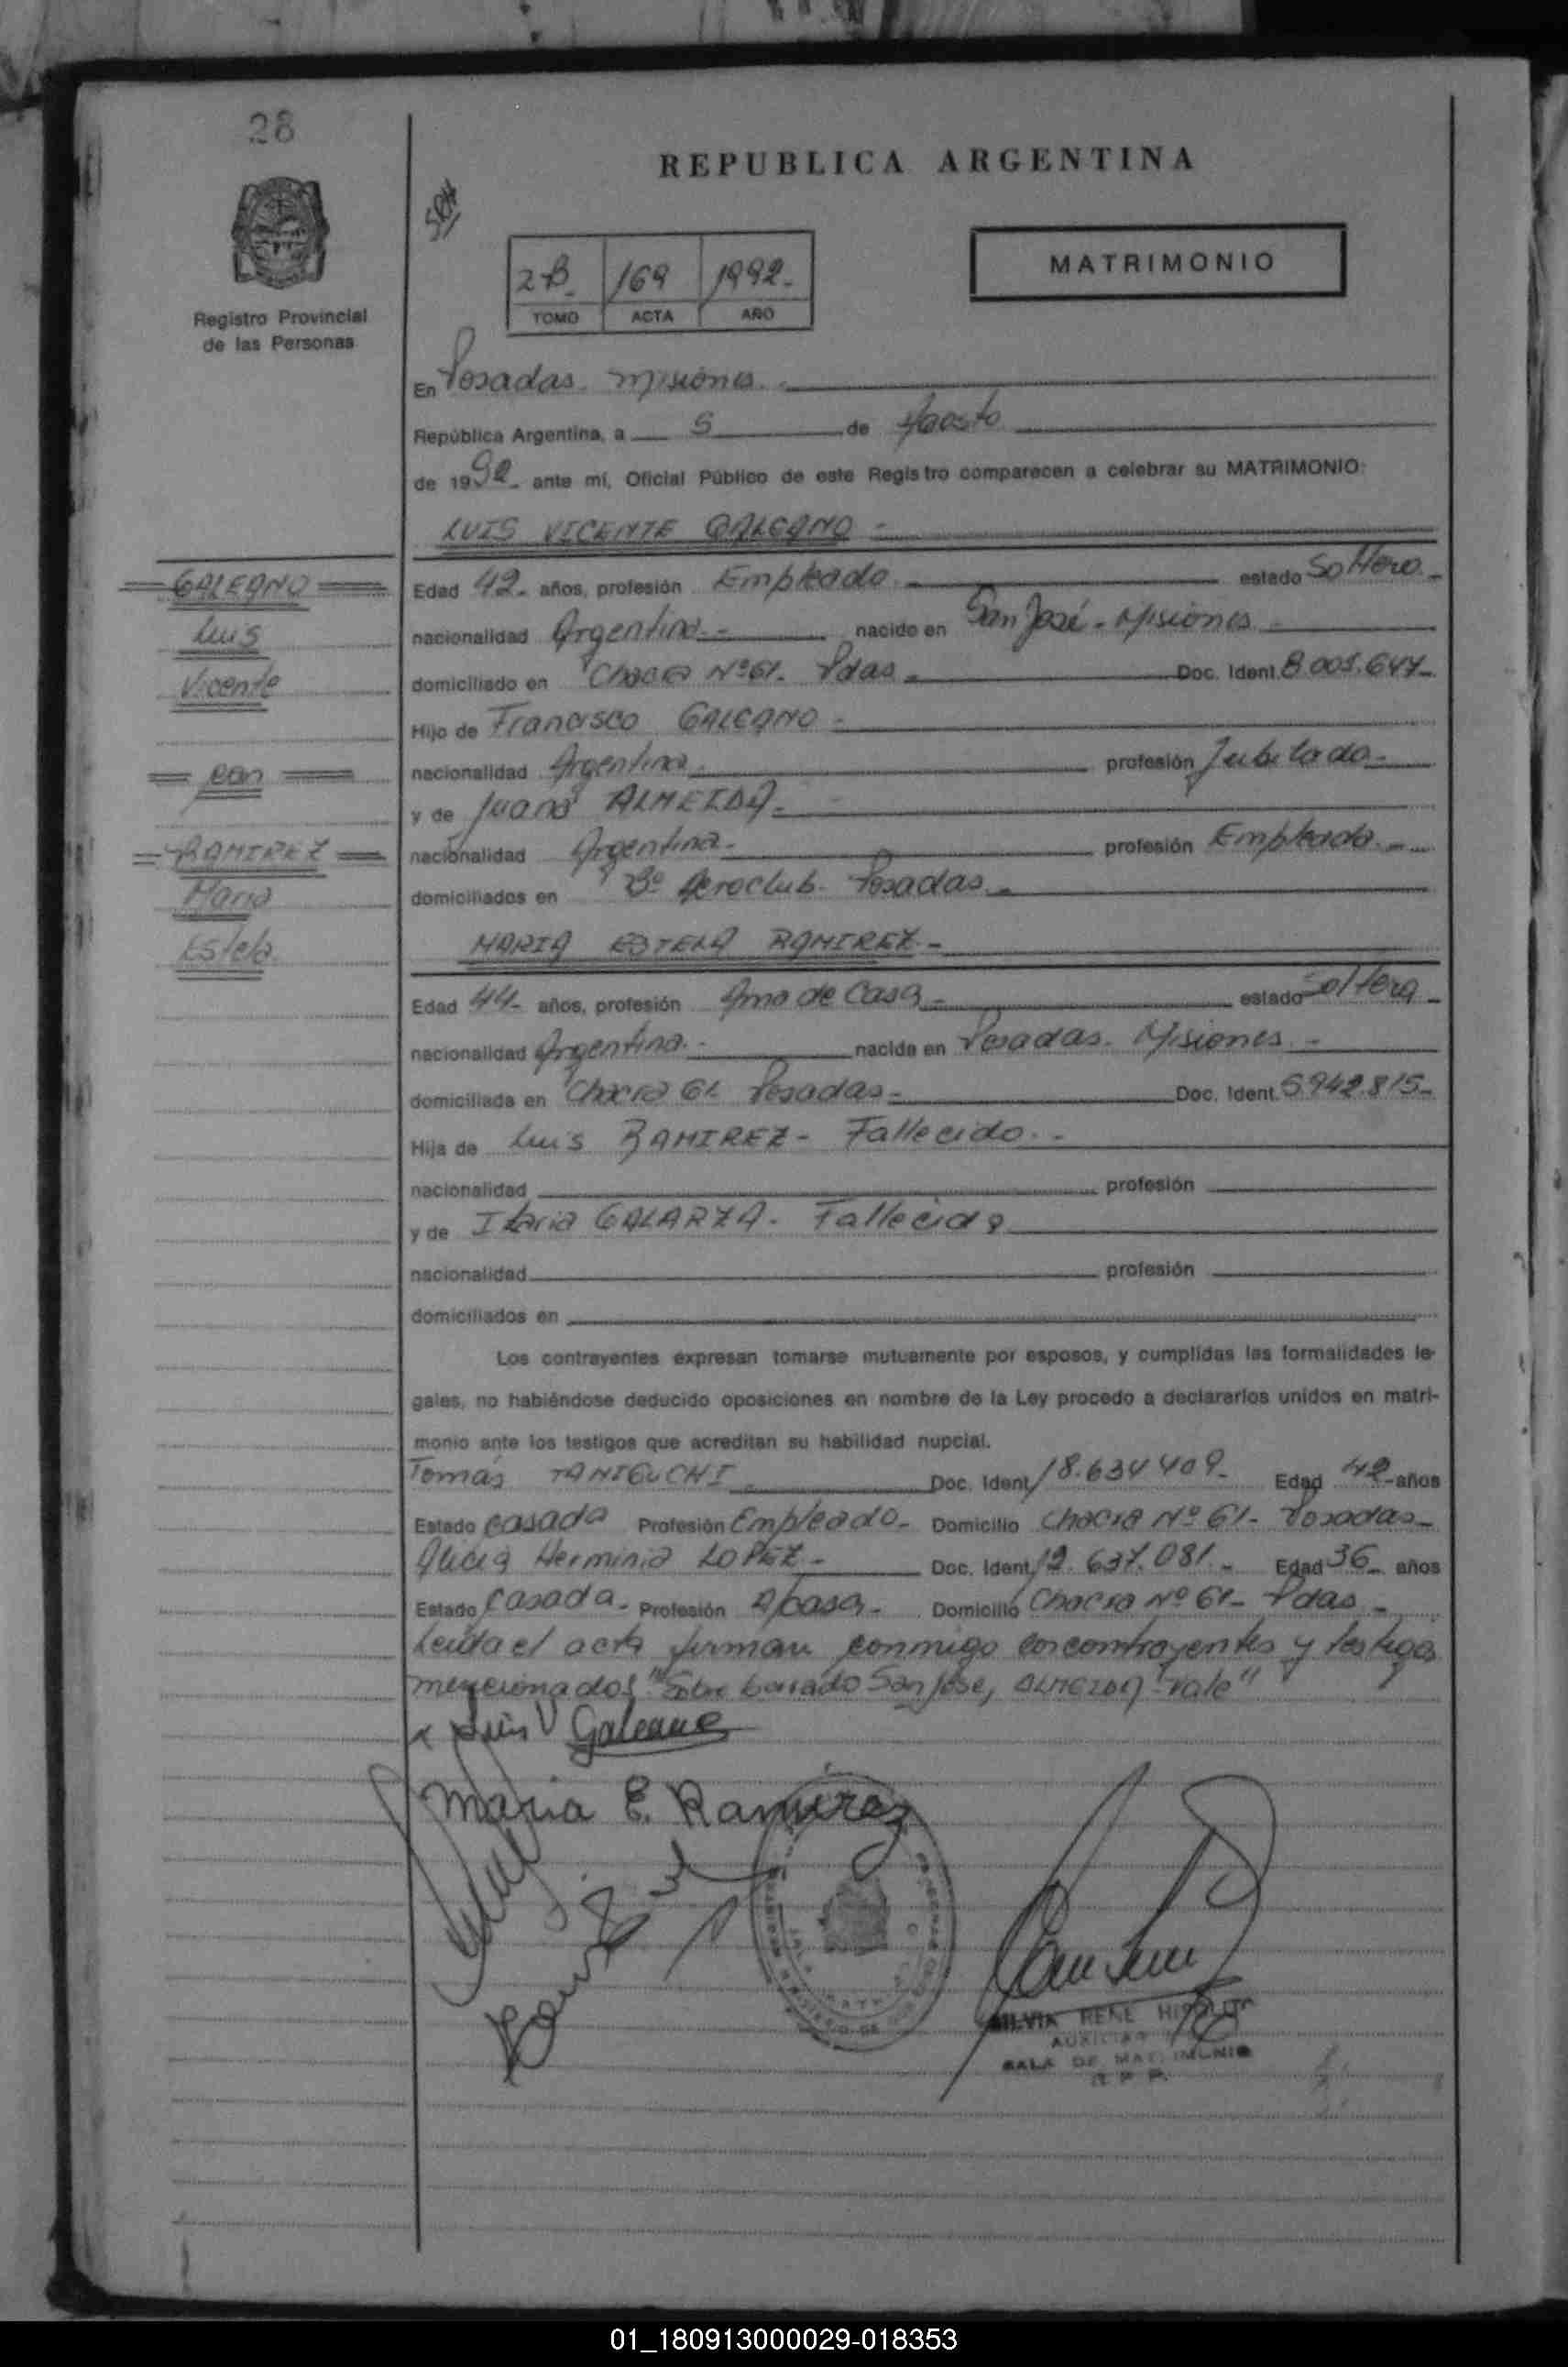 28
REPUBLICA ARGENTINA
2B 169 1992.-
TOMO ACTA AÑO
MATRIMONIO
Registro Provincial
de las Personas
En Posadas Misiones.-
República Argentina, a 5 de Agosto
de 1992.- ante mí, Oficial Público de este Registro comparecen a celebrar su MATRIMONIO:
LUIS VICENTE GALEANO.-
GALEANO
Luis
Vicente
con
RAMIREZ
Maria
Estela
Edad 42.- años, profesión Empleado.- estado Soltero.-
nacionalidad Argentina.- nacido en San José - Misiones.-
domiciliado en Chacra Nº 61. Pdas.- Doc. Ident. 8.001.647.-
Hijo de Francisco GALEANO.-
nacionalidad Argentina.- profesión Jubilado.-
y de Juana ALMEIDA.-
nacionalidad Argentina.- profesión Empleada.-
domiciliados en Bº Aeroclub - Posadas.-
MARIA ESTELA RAMIREZ.-
Edad 44.- años, profesión Ama de Casa.- estado Soltera.-
nacionalidad Argentina.- nacida en Posadas - Misiones.-
domiciliada en Chacra 61 Posadas.- Doc. Ident. 5.942.815.-
Hija de Luis RAMIREZ - Fallecido.-
nacionalidad profesión
y de GALARZA - Fallecida
nacionalidad profesión
domiciliados en
Los contrayentes expresan tomarse mutuamente por esposos, y cumplidas las formalidades le-
gales, no habiéndose deducido oposiciones en nombre de la Ley procedo a declararlos unidos en matri-
monio ante los testigos que acreditan su habilidad nupcial.
Tomás TANIGUCHI.- Doc. Ident. 18.634.409.- Edad 42 años
Estado casado Profesión Empleado.- Domicilio Chacra Nº 61- Posadas.-
Alicia Herminia LOPEZ.- Doc. Ident. 12.637.081.- Edad 36.- años
Estado Casada.- Profesión A/casa.- Domicilio Chacra Nº 61- Pdas.-
Leida el acta firman conmigo los contrayentes y testigos
mencionados "Sobre borrado San José, ALMEIDA - Vale"
Luis V Galeano
Maria E. Ramirez
SILVIA RENE HIPOLITO
AUXILIAR
SALA DE MATRIMONIO
R P P
01_180913000029-018353